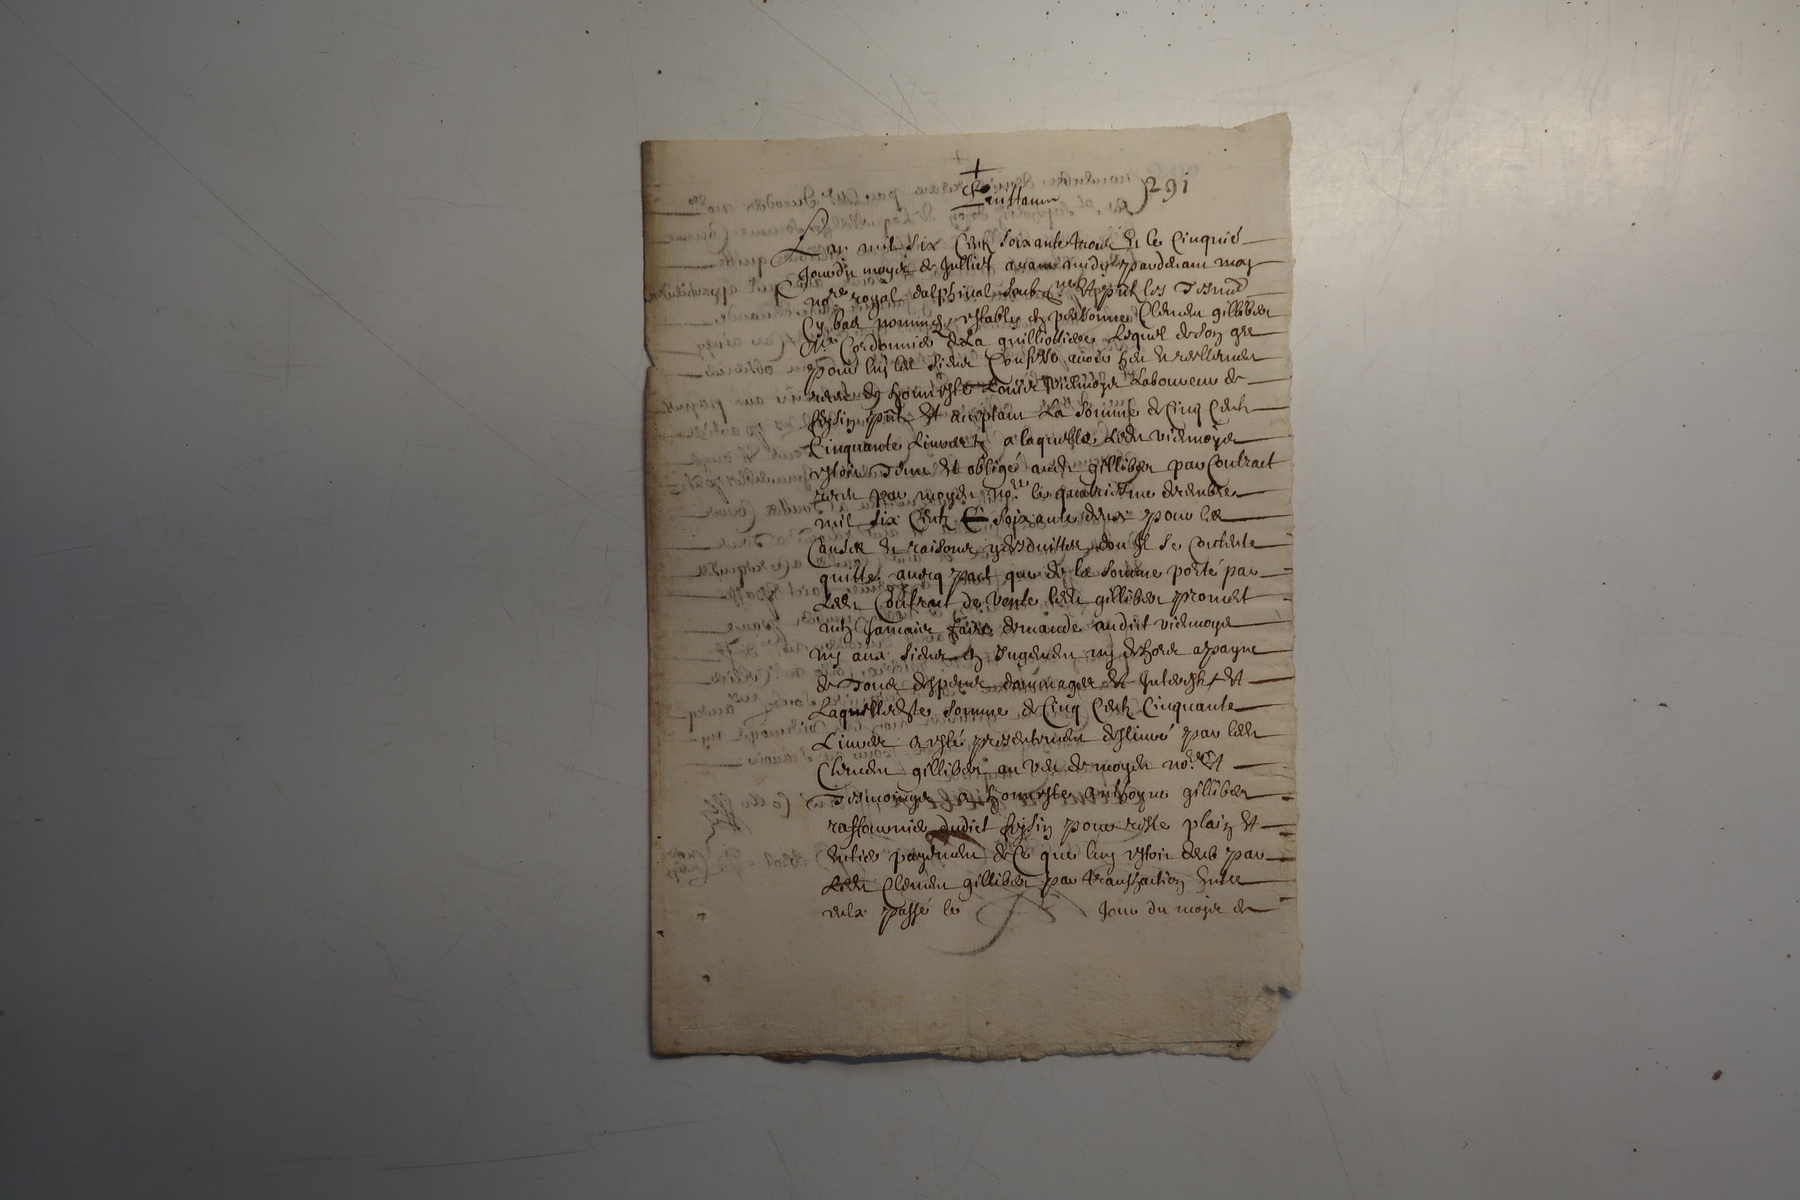 291
Quittance
L'an mil six centz soixante trois et le cinquie
jour du moys de Juillet avant midy pardevant moy
no.re royal dalphinal soub.né et pnt les tesm
cy bas nommés estably en personne Clement gilliber
M.e Cordonnier de la guilliotiere lequel de son gre
pour luy les siens Confesse avoir heu et reellement
receu de honneste Louis viemoyx Laboureur de
feysin pnt et acceptant La somme de Cinq Centz
Cinquante Livres a laquelle ledit viemoyx
estoit tenu et obligé audit gilliber par Contract
receu par moydit no.re le quatriesme decembre
mil six Centz soixante deux pour les
Causes et raisons y desduittes dont il se contente
quitte avecq pact que de la somme porté par
Ledit Contrait de vente ledit gilliber promet
nen jamais faire demande audict viemoyx
ny aux siens en jugement ny dehors a payne
de tous despens dommages et interestz et
Laquelle ditte somme de Cinq Centz Cinquante
Livres a esté presentement deslivré par ledit
Clement gilliber au veu de moydit no.re et
tesmoings a honneste anthoyne gilliber
dudict feysin pour reste plain et
entier payement de Ce que luy estoit deub par
Ledit Clement gilliber par transaction entre
eulx passé le jour du moys de